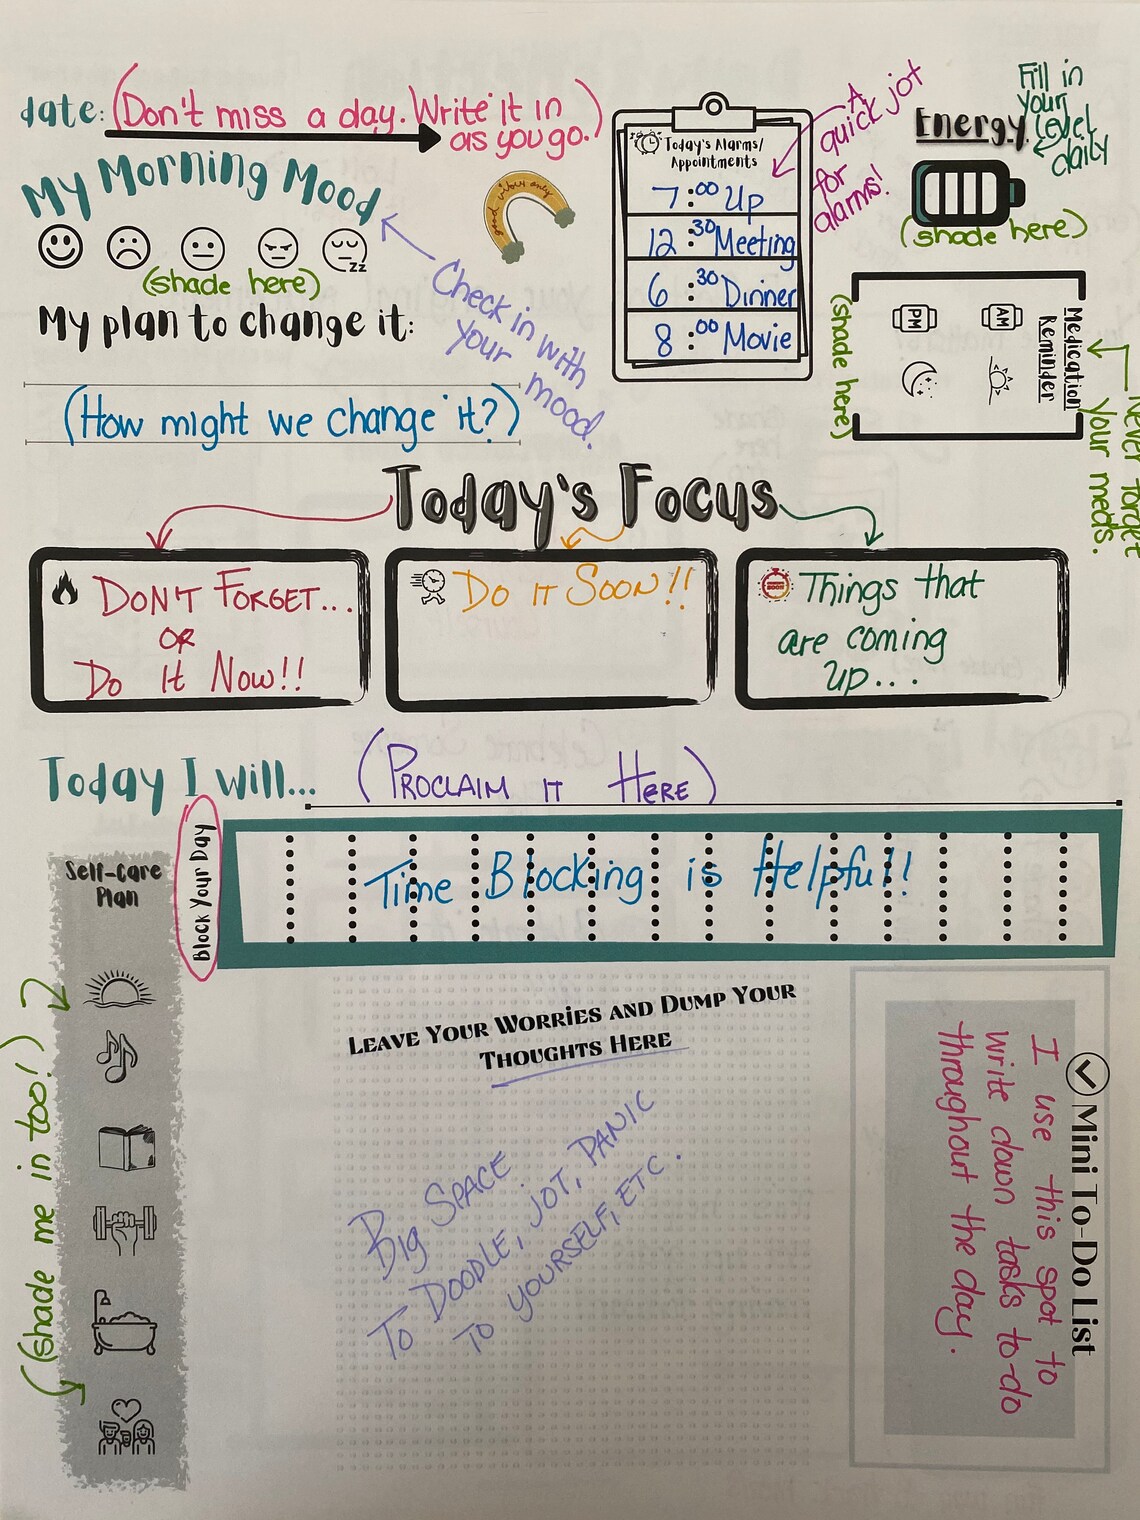 date: (Don't miss a day. Write it in
as you go.)
My Morning Mood
zz
(shade here)
My plan to change it:
(How might we change it?)
good vibes only
Check in with
your mood.
Today's Alarms/
Appointments
7:00 Up
12:30 Meeting
6:30 Dinner
8:00 Movie
A
quick jot
for
alarms!
Energy
Fill in
your
level
daily
(shade here)
Medication
Reminder
AM
PM
(shade here)
Never forget
your meds.
Today's Focus
Don't Forget...
or
Do It Now!!
Do it Soon!!
Things that
are coming
up...
Today I will... (Proclaim it Here)
Block Your Day
Time Blocking is Helpful!
Self-Care
Plan
(shade me in too!)
Leave Your Worries and Dump Your
Thoughts Here
Big Space
To Doodle, jot, panic
to yourself, etc.
Mini To-Do List
I use this spot to
write down tasks to-do
throughout the day.